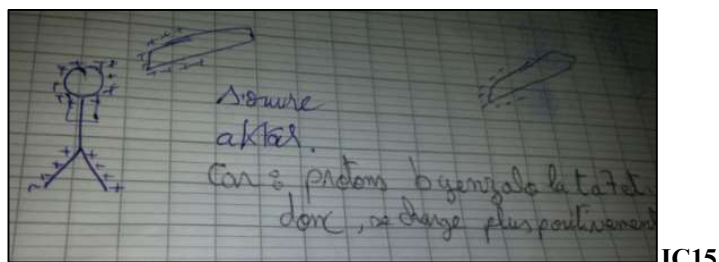 s'ouvre
aktar.
Car : protons byenzalo la ta7et.
donc, se charge plus positivement
IC15